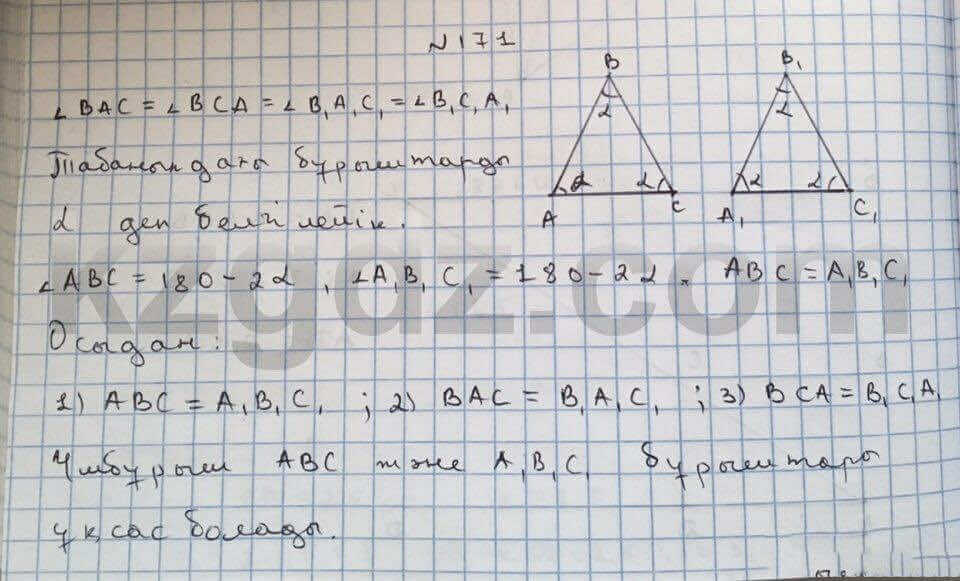 N171
∠BAC = ∠BCA = ∠B₁A₁C₁ = ∠B₁C₁A₁
Табанындағы бұрыштарды
α деп белгілейік.
B
α
α
α
A
C
B₁
α
α
α
A₁
C₁
∠ABC = 180 - 2α, ∠A₁B₁C₁ = 180 - 2α. ABC = A₁B₁C₁
Осыдан:
1) ABC = A₁B₁C₁ ; 2) BAC = B₁A₁C₁ ; 3) BCA = B₁C₁A₁
Үшбұрыш ABC және A₁B₁C₁ бұрыштары
ұқсас болады.
kzgdz.com